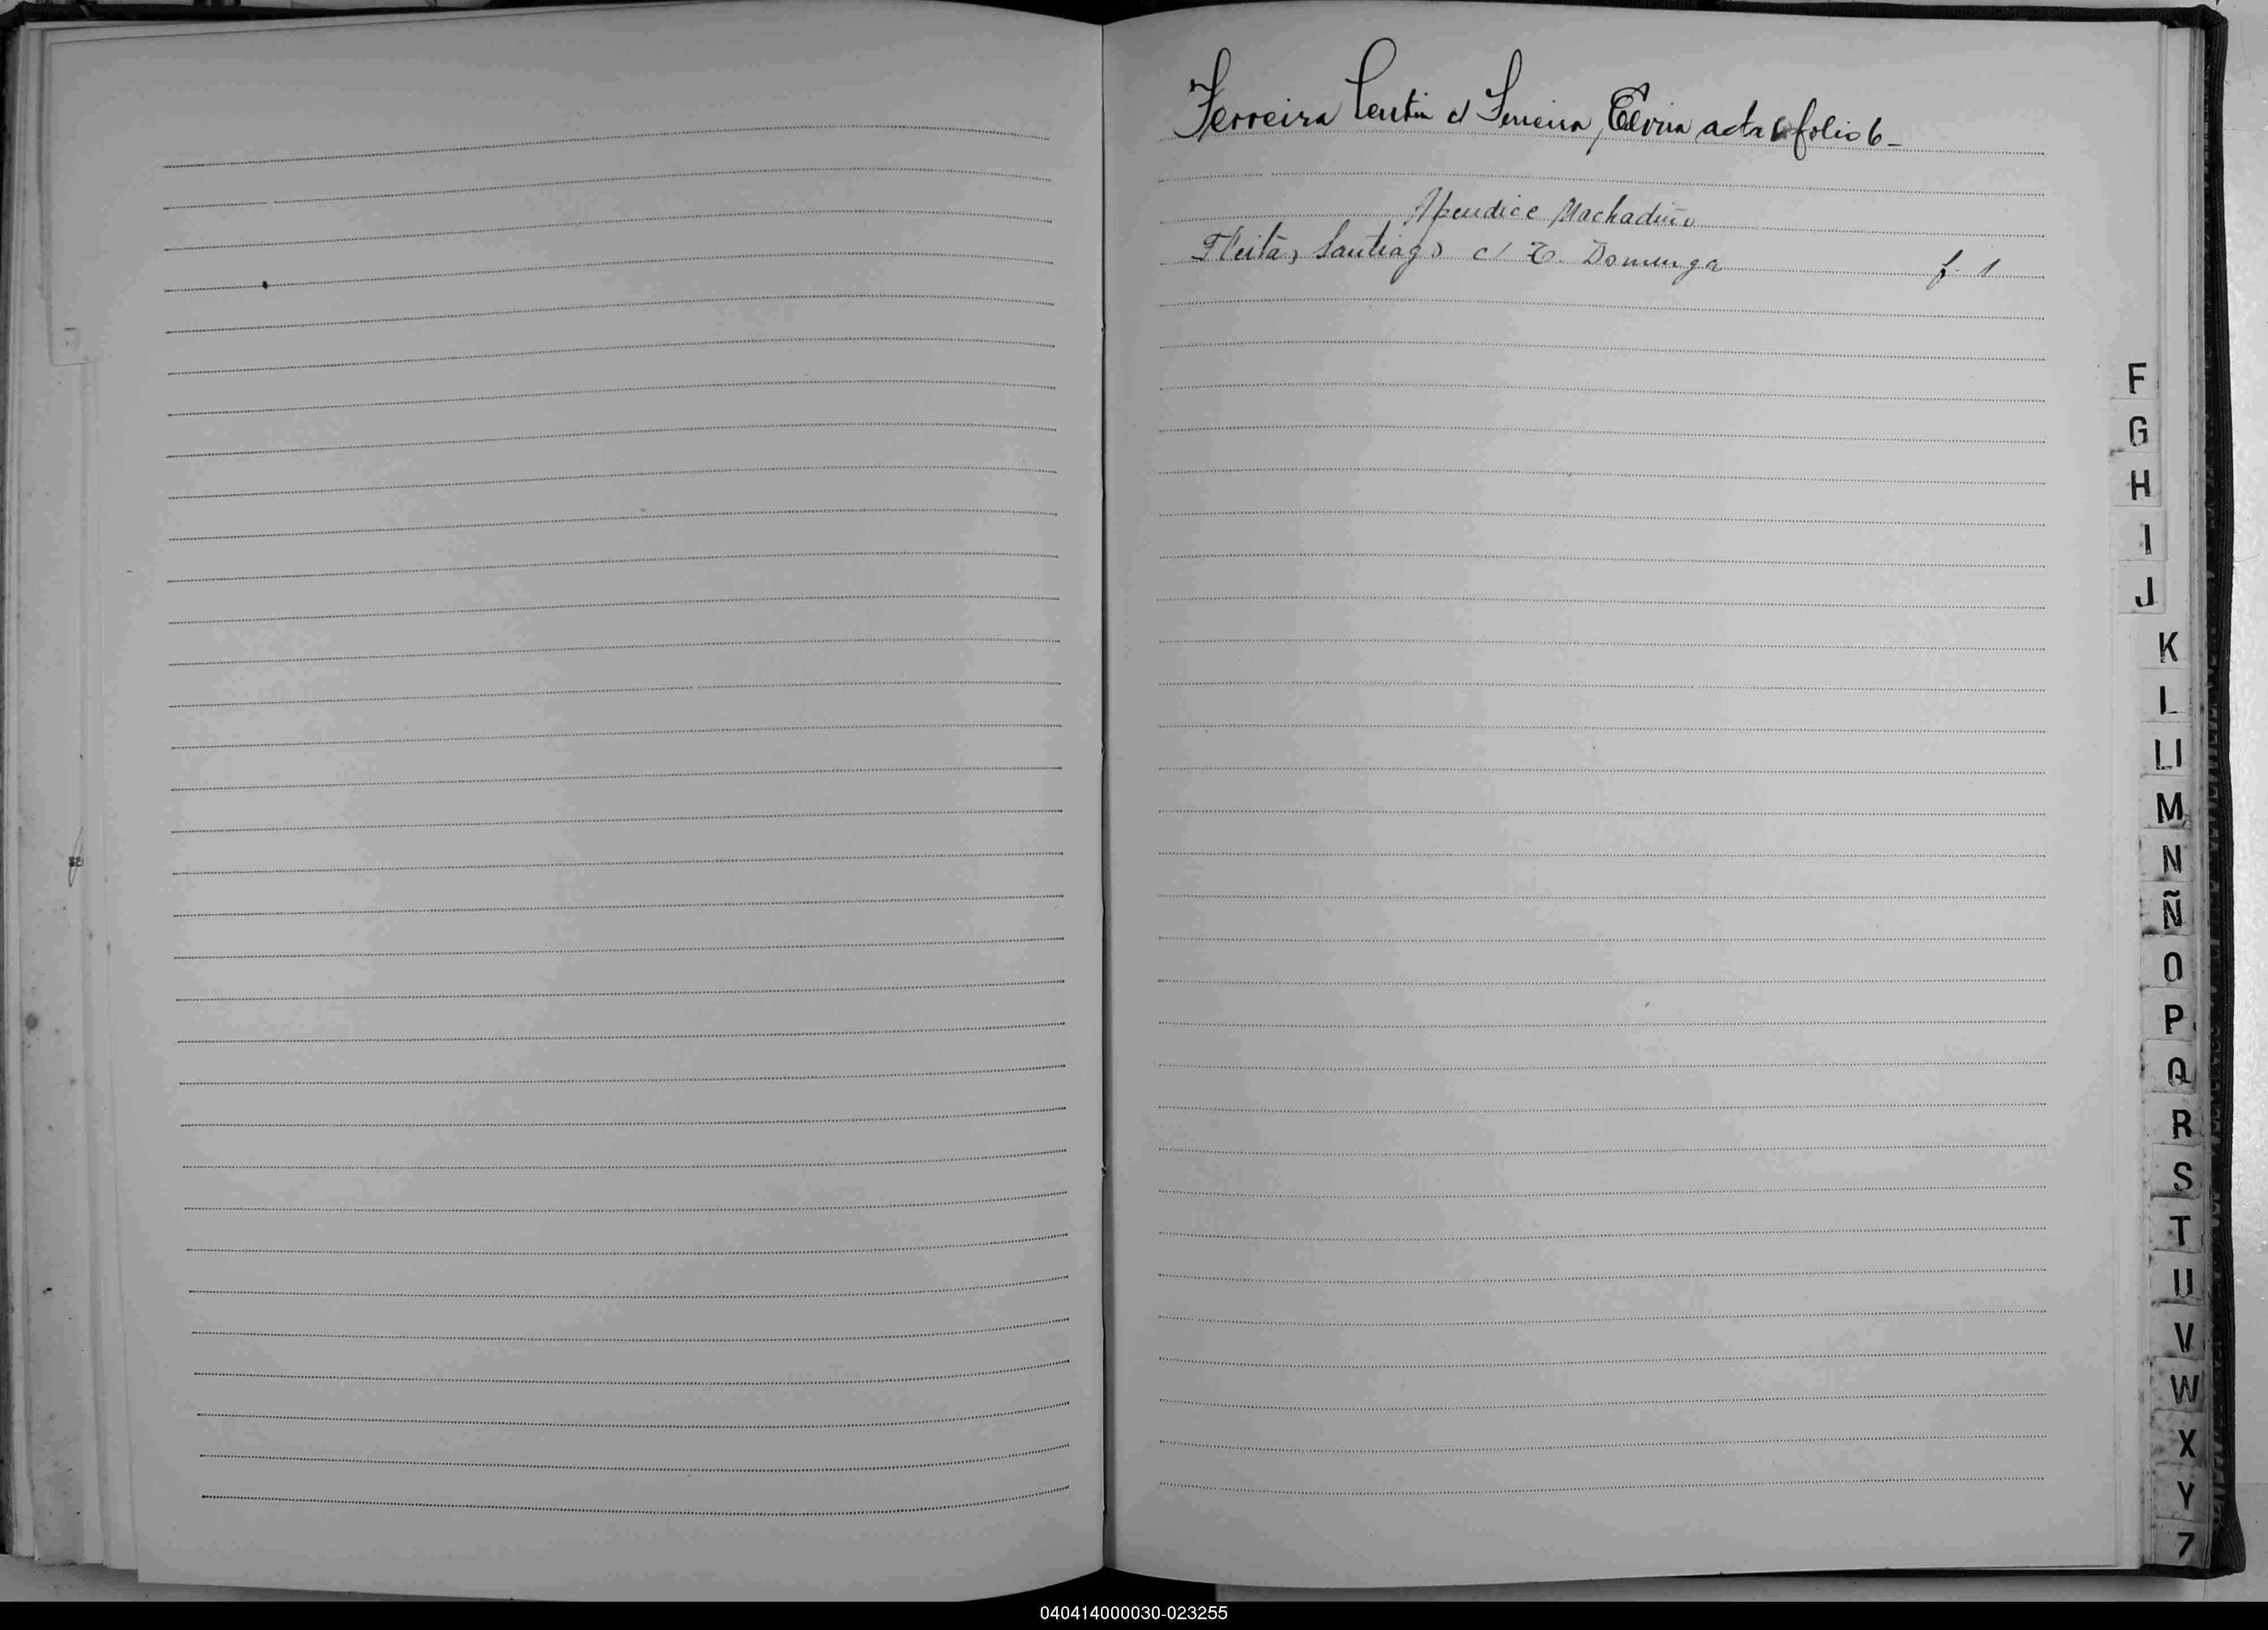 Ferreira c/ Elvira acta 6 folio 6_
Apendice Machadiño
Fleitas, Santiago c/ T. Domenga f. 1
F
G
H
I
J
K
L
Ll
M
N
Ñ
O
P
Q
R
S
T
U
V
W
X
Y
Z
040414000030-023255